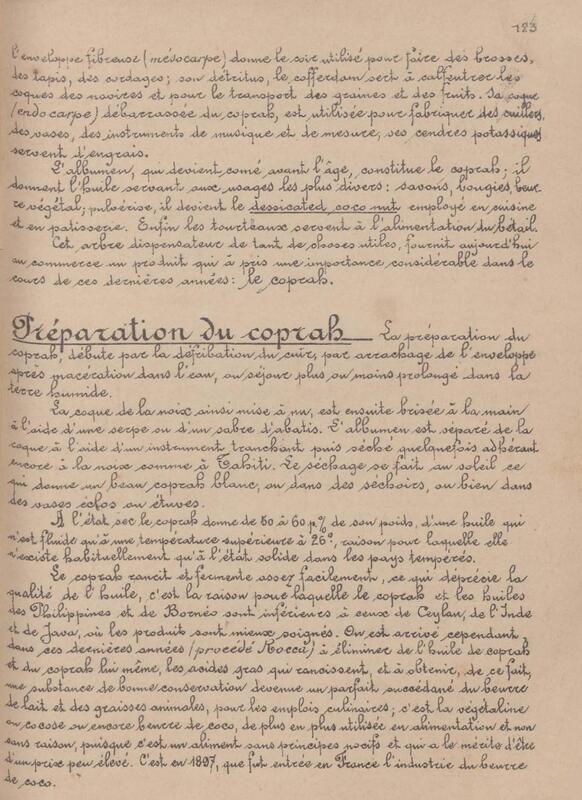 123
l'enveloppe fibreuse (mésocarpe) donne le coir utilisé pour faire des brosses,
des tapis, des cordages; son détritus, le cofferdam sert à calfeutrer les
coques des navires et pour le transport des graines et des fruits. Sa coque
(endocarpe) débarrassée du coprah, est utilisée pour fabriquer des cuillers,
des vases, des instruments de musique et de mesure; ses cendres potassiques
servent d'engrais.
L'albumen, qui devient corné avant l'âge, constitue le coprah; il
donnent l'huile servant aux usages les plus divers: savons, bougies, beur
re végétal; pulvérisé, il devient le dessicated coco nut employé en cuisine
et en patisserie. Enfin les tourteaux servent à l'alimentation du bétail.
Cet arbre dispensateur de tant de choses utiles, fournit aujourd'hui
au commerce un produit qui à pris une importance considérable dans le
cours de ces dernières années: le coprah.
Préparation du coprah La préparation du
coprah, débute par la défibration du cuir, par arrachage de l'enveloppe
après macération dans l'eau, ou séjour plus ou moins prolongé dans la
terre humide.
La coque de la noix ainsi mise à nu, est ensuite brisée à la main
à l'aide d'une serpe ou d'un sabre d'abatis. L'albumen est séparé de la
coque à l'aide d'un instrument tranchant puis séché quelquefois adhérant
encore à la noix comme à Tahiti. Le séchage se fait au soleil ce
qui donne un beau coprah blanc, ou dans des séchoirs, ou bien dans
des vases clos ou étuves.
A l'état sec le coprah donne de 50 à 60 p% de son poids, d'une huile qui
n'est fluide qu'à une température supérieure à 26°, raison pour laquelle elle
n'existe habituellement qu'à l'état solide dans les pays tempérés.
Le coprah rancit et fermente assez facilement, ce qui déprécie la
qualité de l'huile, c'est la raison pour laquelle le coprah et les huiles
des Philippines et de Bornéo sont inférieurs à ceux de Ceylan, de l'Inde
et de Java, où les produits sont mieux soignés. On est arrivé cependant,
dans ces dernières années (procédé Rocca) à éliminer de l'huile de coprah
et du coprah lui même, les acides gras qui rancissent, et à obtenir, de ce fait,
une substance de bonne conservation devenue un parfait succédané du beurre
de lait et des graisses animales, pour les emplois culinaires; c'est la végétaline
ou cocose ou encore beurre de coco, de plus en plus utilisée en alimentation et non
sans raison, puisque c'est un aliment sans principes nocifs et qui a le mérite d'être
d'un prix peu élevé. C'est en 1897, que fut entrée en France l'industrie du beurre
de coco.